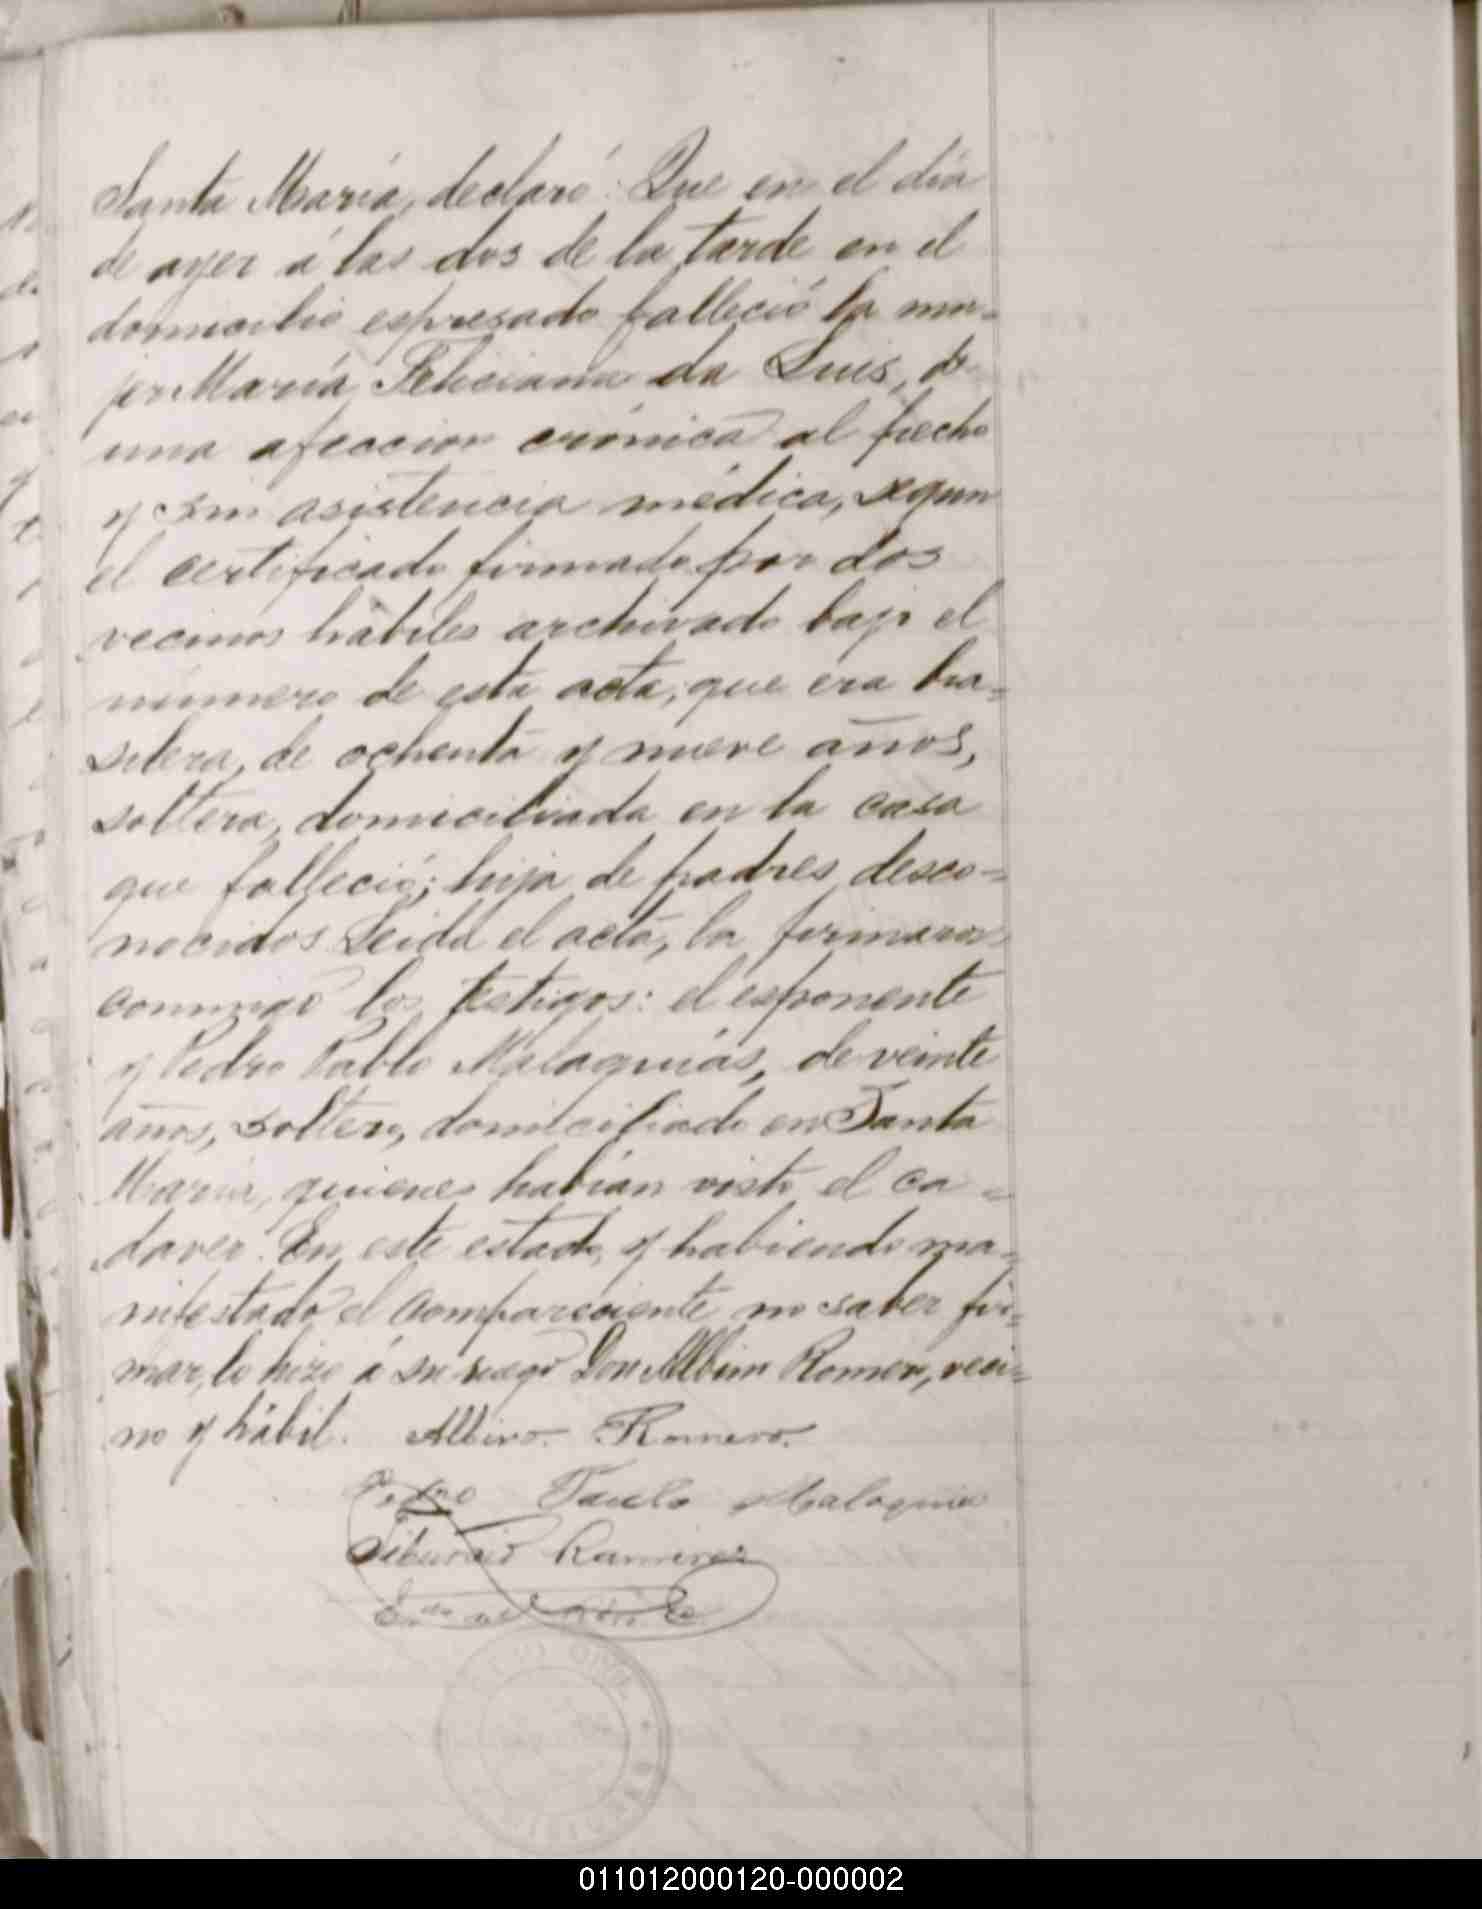 Santa María, declaró: Que en el día
de ayer á las dos de la tarde en el
domicilio espresado falleció la mu-
jer María Feliciana da Luis, de
una afeccion crónica al pecho
y sin asistencia médica, segun
el certificado firmado por dos
vecinos hábiles archivado bajo el
número de esta acta; que era bra-
silera, de ochenta y nueve años,
soltera, domiciliada en la casa
que falleció; hija de padres desco-
nocidos Leida el acta, la firmaron
conmigo los testigos: el esponente
y Pedro Pablo Malaquías, de veinte
años, soltero, domiciliado en Santa
María, quienes habían visto el ca-
daver. En este estado, y habiendo ma-
nifestado el compareciente no saber fir-
mar, lo hizo á su ruego Don Albino Romero, veci-
no y hábil. Albino Romero.
Pedro Paulo Malaquias
Tiburcio Ramirez
011012000120-000002